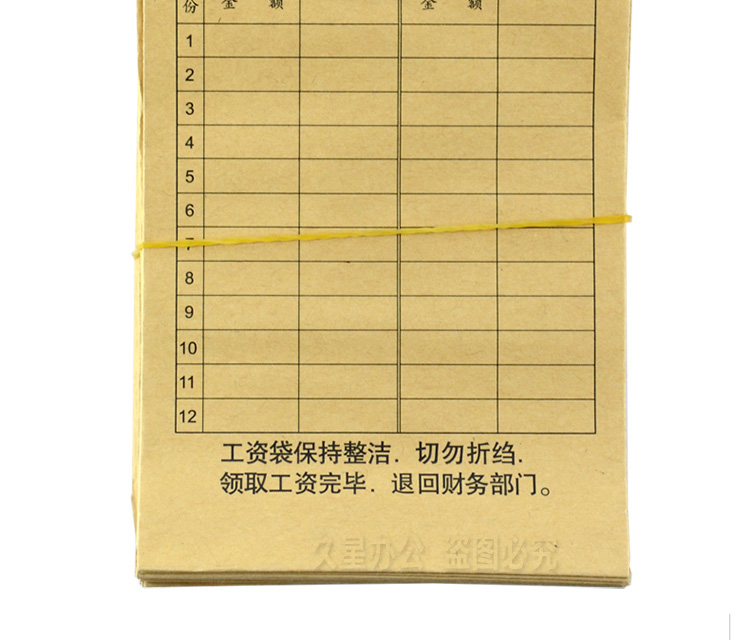 份 金 额 金 额
1
2
3
4
5
6
7
8
9
10
11
12
工资袋保持整洁. 切勿折绉.
领取工资完毕. 退回财务部门。
久里办公 盗图必究